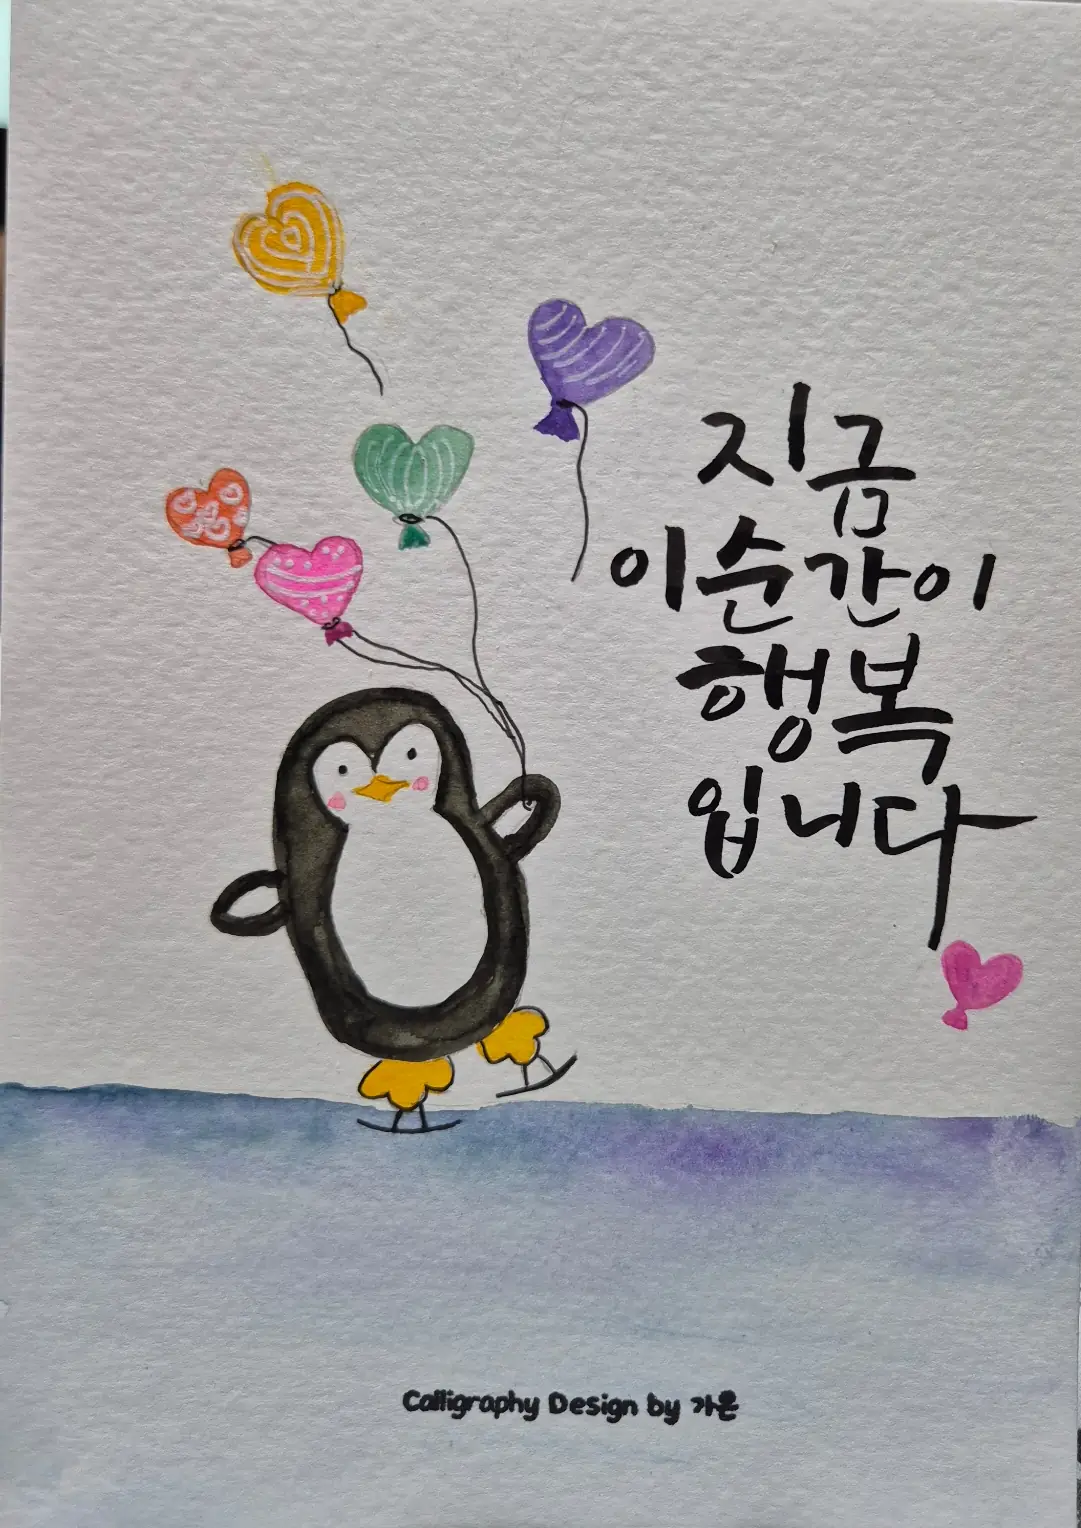 지금
이순간이
행복
입니다
Calligraphy Design by 가온